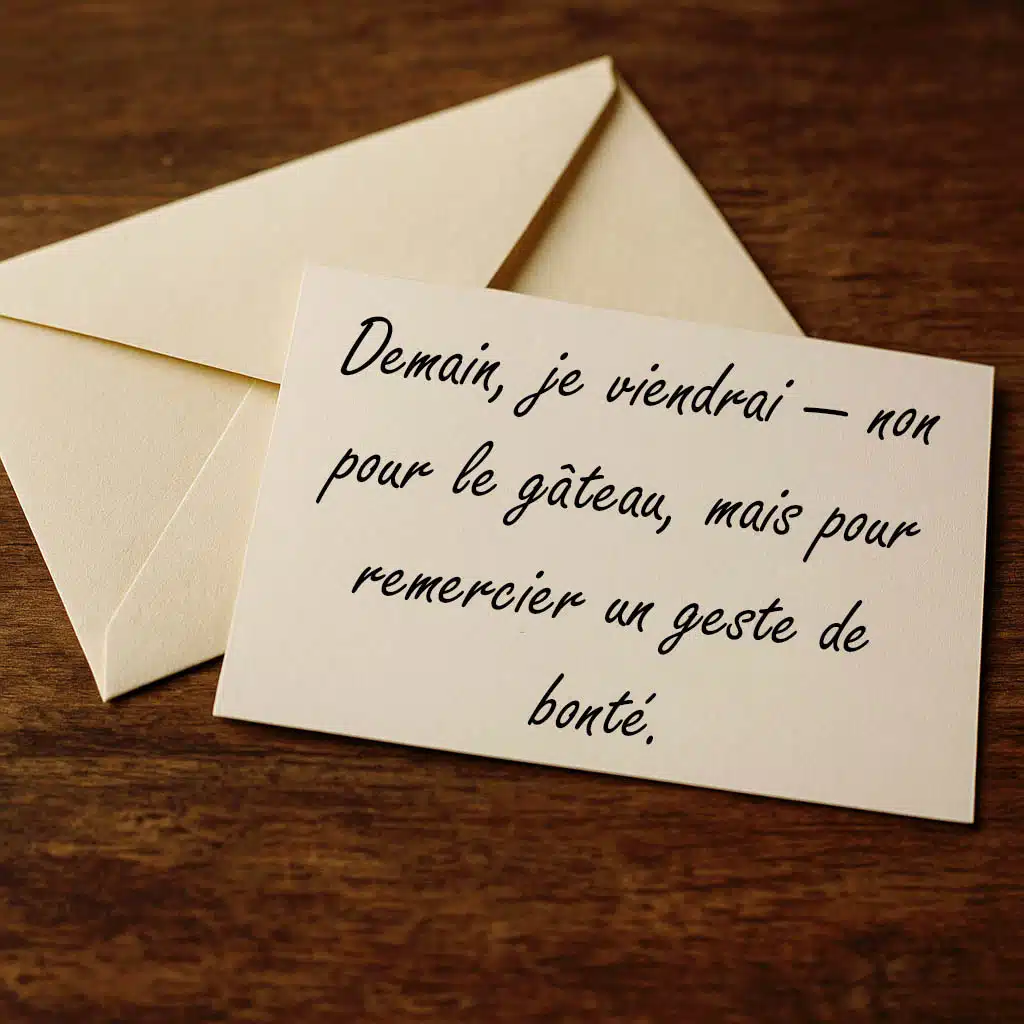 Demain, je viendrai – non
pour le gâteau, mais pour
remercier un geste de
bonté.